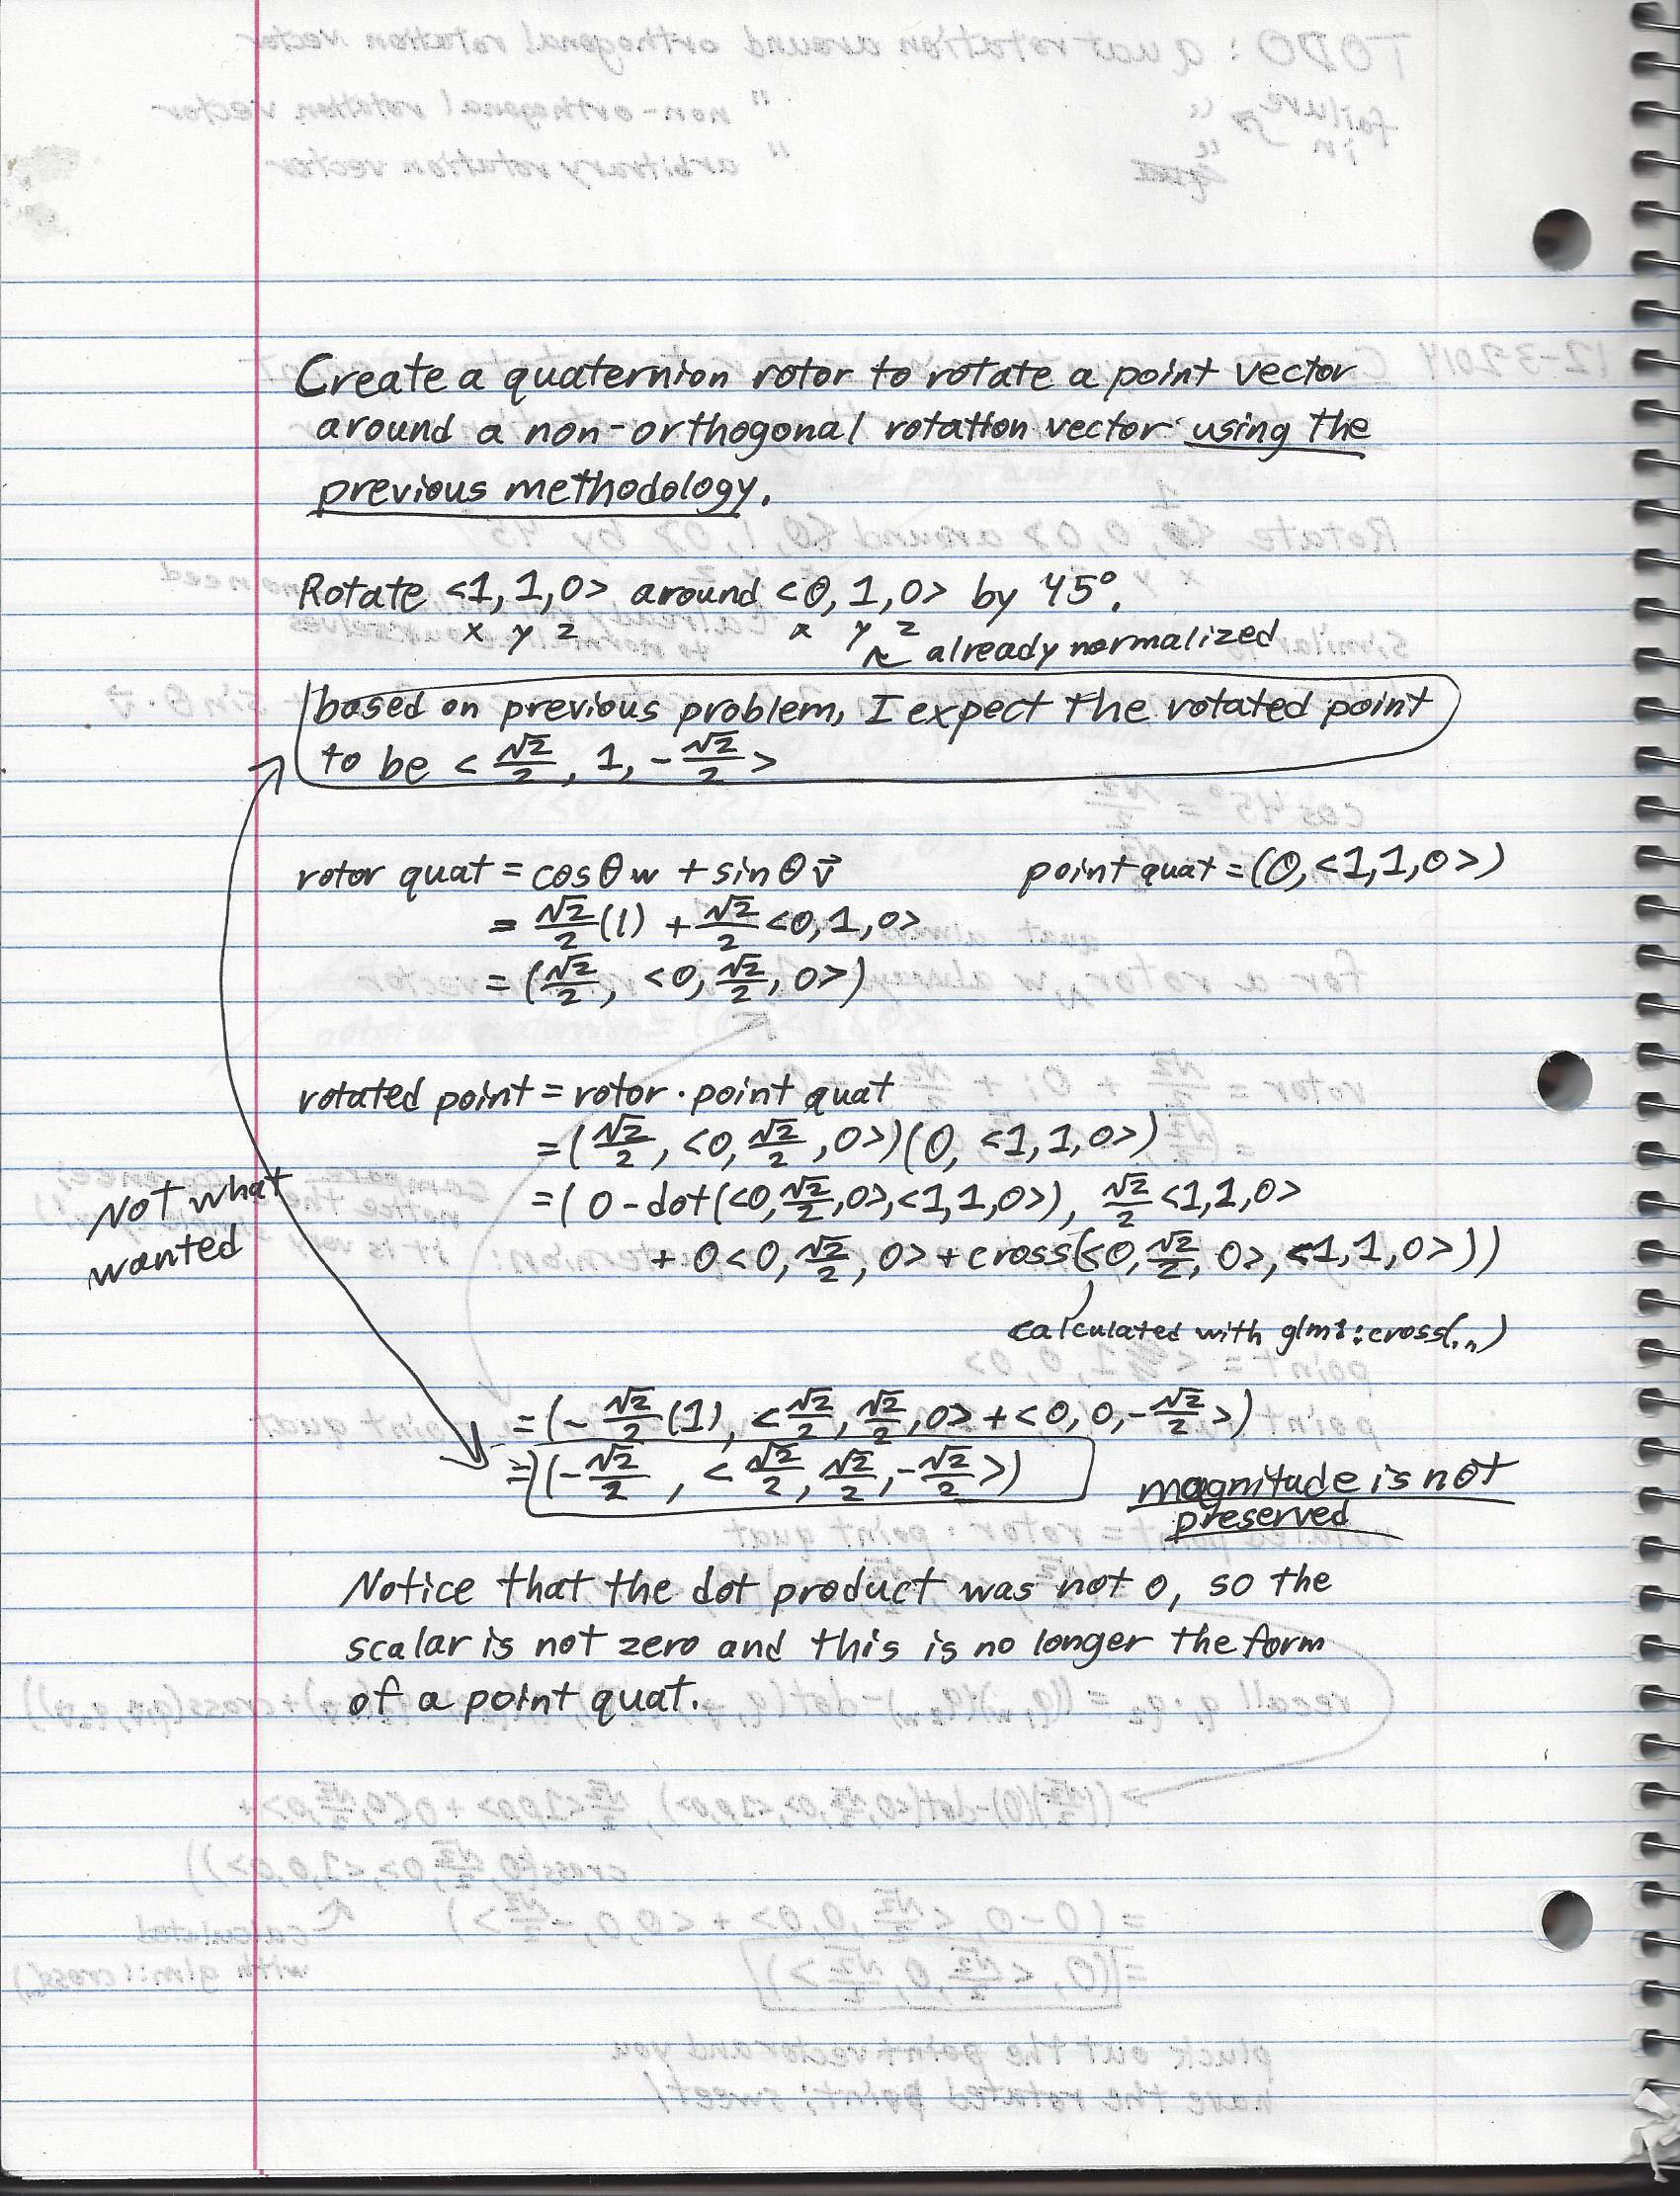 Create a quaternion rotor to rotate a point vector
around a non-orthogonal rotation vector using the
previous methodology.
Rotate <1, 1, 0> around <0, 1, 0> by 45°.
x y z x y z
already normalized
based on previous problem, I expect the rotated point
to be < √2/2, 1, -√2/2 >
rotor quat = cosθ w + sinθ v⃗
point quat = (0, <1,1,0>)
= √2/2 (1) + √2/2 <0,1,0>
= (√2/2, <0, √2/2, 0>)
rotated point = rotor · point quat
= (√2/2, <0, √2/2, 0>)(0, <1,1,0>)
= (0 - dot(<0, √2/2, 0>, <1,1,0>), √2/2 <1,1,0>
+ 0<0, √2/2, 0> + cross(<0, √2/2, 0>, <1,1,0>))
calculated with glm::cross(,,)
Not what
wanted
= (-√2/2 (1), <√2/2, √2/2, 0> + <0, 0, -√2/2>)
= (-√2/2, <√2/2, √2/2, -√2/2>)
magnitude is not
preserved
Notice that the dot product was not 0, so the
scalar is not zero and this is no longer the form
of a point quat.